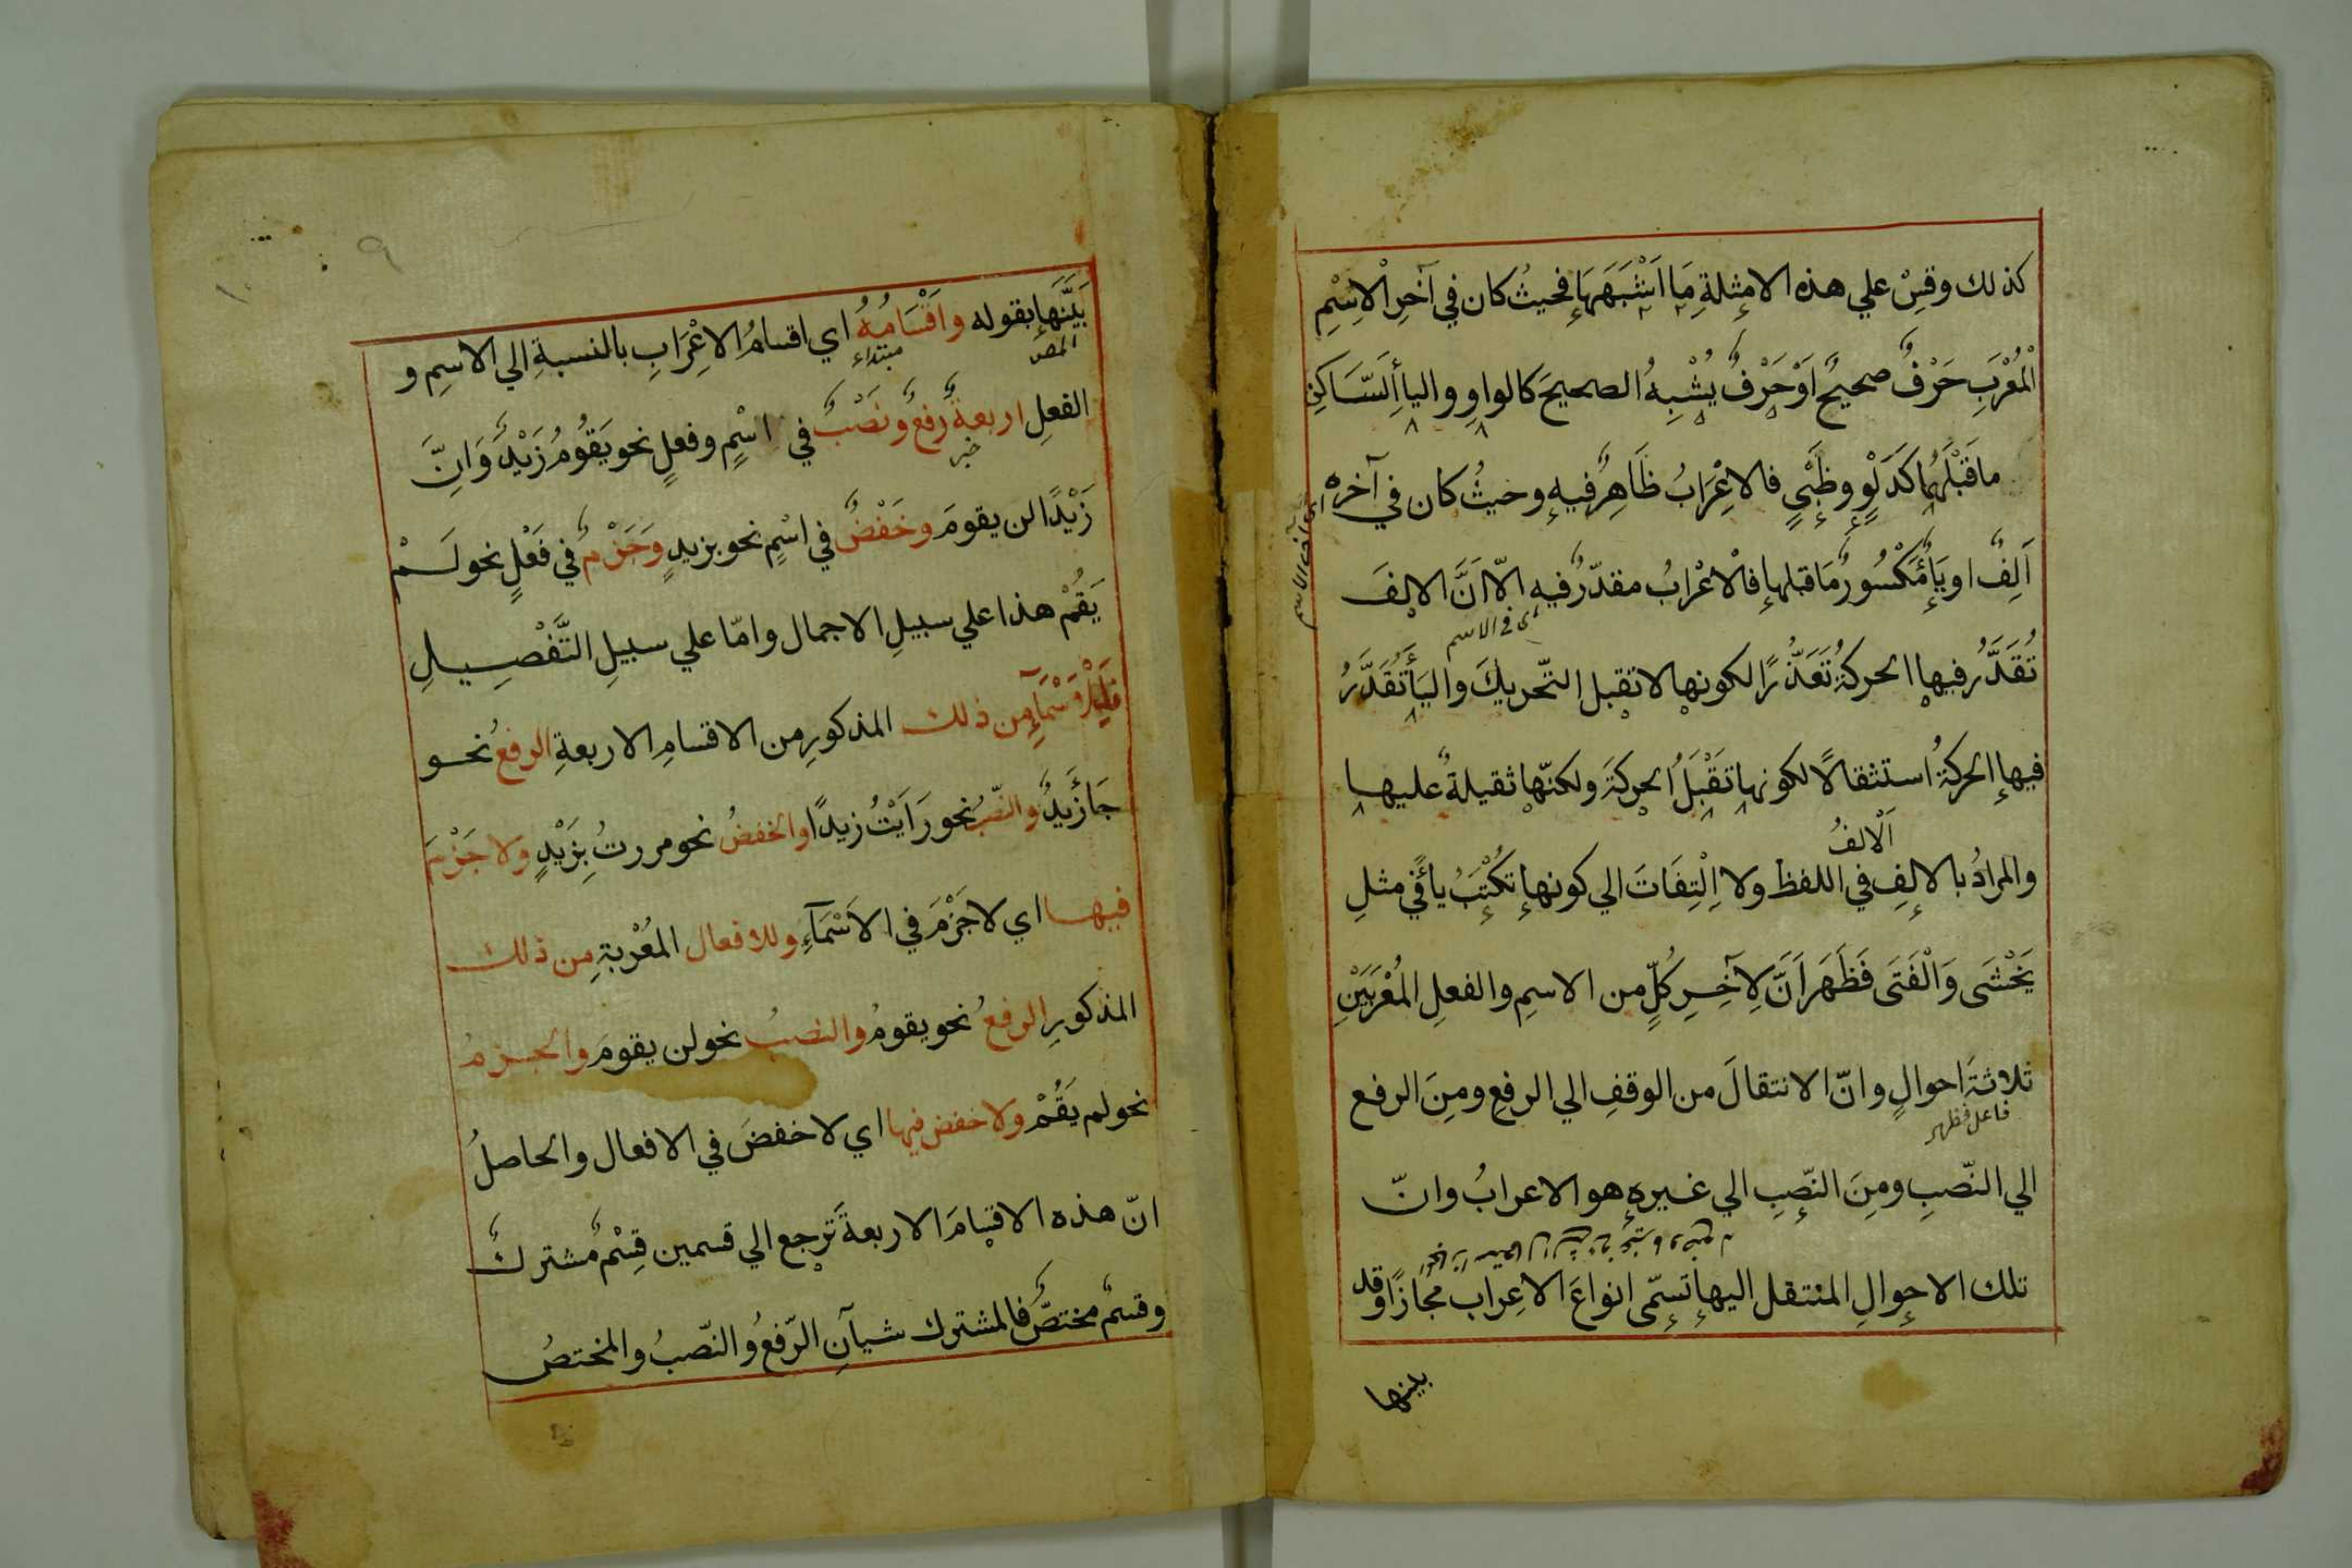 كذلك وقِسْ علي هذه الامثلةِ مَا اَشْبَهَهَا فحيثُ كان في آخرِ الْاِسْمِ
الْمُعْرَبِ حَرْفٌ صحيحٌ اَوْ حَرْفٌ يُشْبِهُ الصحيحَ كالواوِ والياءِ السَّاكِنِ
ما قَبْلَهُمَا كَدَلْوٍ وظَبْيٍ فالاِعْرَابُ ظَاهِرٌ فيهِ وحيثُ كان في آخره
اي آخر الاسم
اَلِفٌ او يَاءٌ مَكْسُورٌ مَا قبلها فالاعْرابُ مقدّرٌ فيهِ الّا اَنَّ الالِفَ
اى فى الاسم
تُقَدَّرُ فيها الحركةُ تَعَذُّرًا لكونها لا تقبل التّحريكَ والياءَ تُقَدَّرُ
فيها الحركةُ استثقالًا لكونها تَقْبَلُ الحركةَ ولكنّها ثقيلةٌ عليها
اَلْالفُ
والمرادُ بالالِفِ في اللفظ ولا اِلْتِفَاتَ الي كونها تكْتَبُ ياءً في مثلِ
يَخْشَى وَالْفَتَى فَظَهَرَ اَنَّ لِآخِرِ كُلٍّ من الاسمِ والفعلِ المُعْرَبَيْنِ
ثلاثةَ احوالٍ وانّ الانتقالَ من الوقفِ الي الرفعِ ومِنَ الرفع
فاعل فظهر
الي النّصبِ ومِنَ النّصِبِ الي غيرهِ هو الاعرابُ وانّ
تلك الاحوالِ المنتقل اليها تسمّى انواعَ الاعراب مجازًا وقد
بينها
٩
١٠
بَيَّنَهَا بقوله واَقْسَامُهُ اي اقسامُ الاِعْرَابِ بالنسبةِ الي الاسمِ و
المص
مبتداء
الفعلِ اربعةٌ رفعٌ ونَصْبٌ في اسْمٍ وفعلٍ نحو يَقُومُ زَيْدٌ وَاِنَّ
خبر
زَيْدًا لن يقومَ وخَفْضٌ في اسْمٍ نحو بزيدٍ وَجَزْمٌ في فَعْلٍ نحو لَمْ
يَقُمْ هذا علي سبيلِ الاجمال وامّا علي سبيلِ التَّفْصِيلِ
فَلِلْاَسْمَآءِ من ذلك المذكورِ من الاقسامِ الاربعةِ الرفعُ نحو
جَاءَ زَيْدٌ والنّصبُ نحو رَاَيْتُ زيدًا والخفضُ نحو مررتُ بِزَيْدٍ ولا جَزْمَ
فيها اي لا جَزْمَ في الاَسْمَآءِ وللافعال المُعْرَبةِ مِن ذلك
المذكورِ الرفعُ نحو يقومُ والنصبُ نحو لن يقومَ والجزمُ
نحو لم يَقُمْ ولا خفض فيها اي لا خفضَ في الافعال والحاصلُ
انّ هذه الاقسامَ الاربعةَ ترجع الي قسمين قِسْمٌ مشتركٌ
وقسمٌ مختصٌّ فالمشترك شيآنِ الرّفعُ والنّصبُ والمختصُ